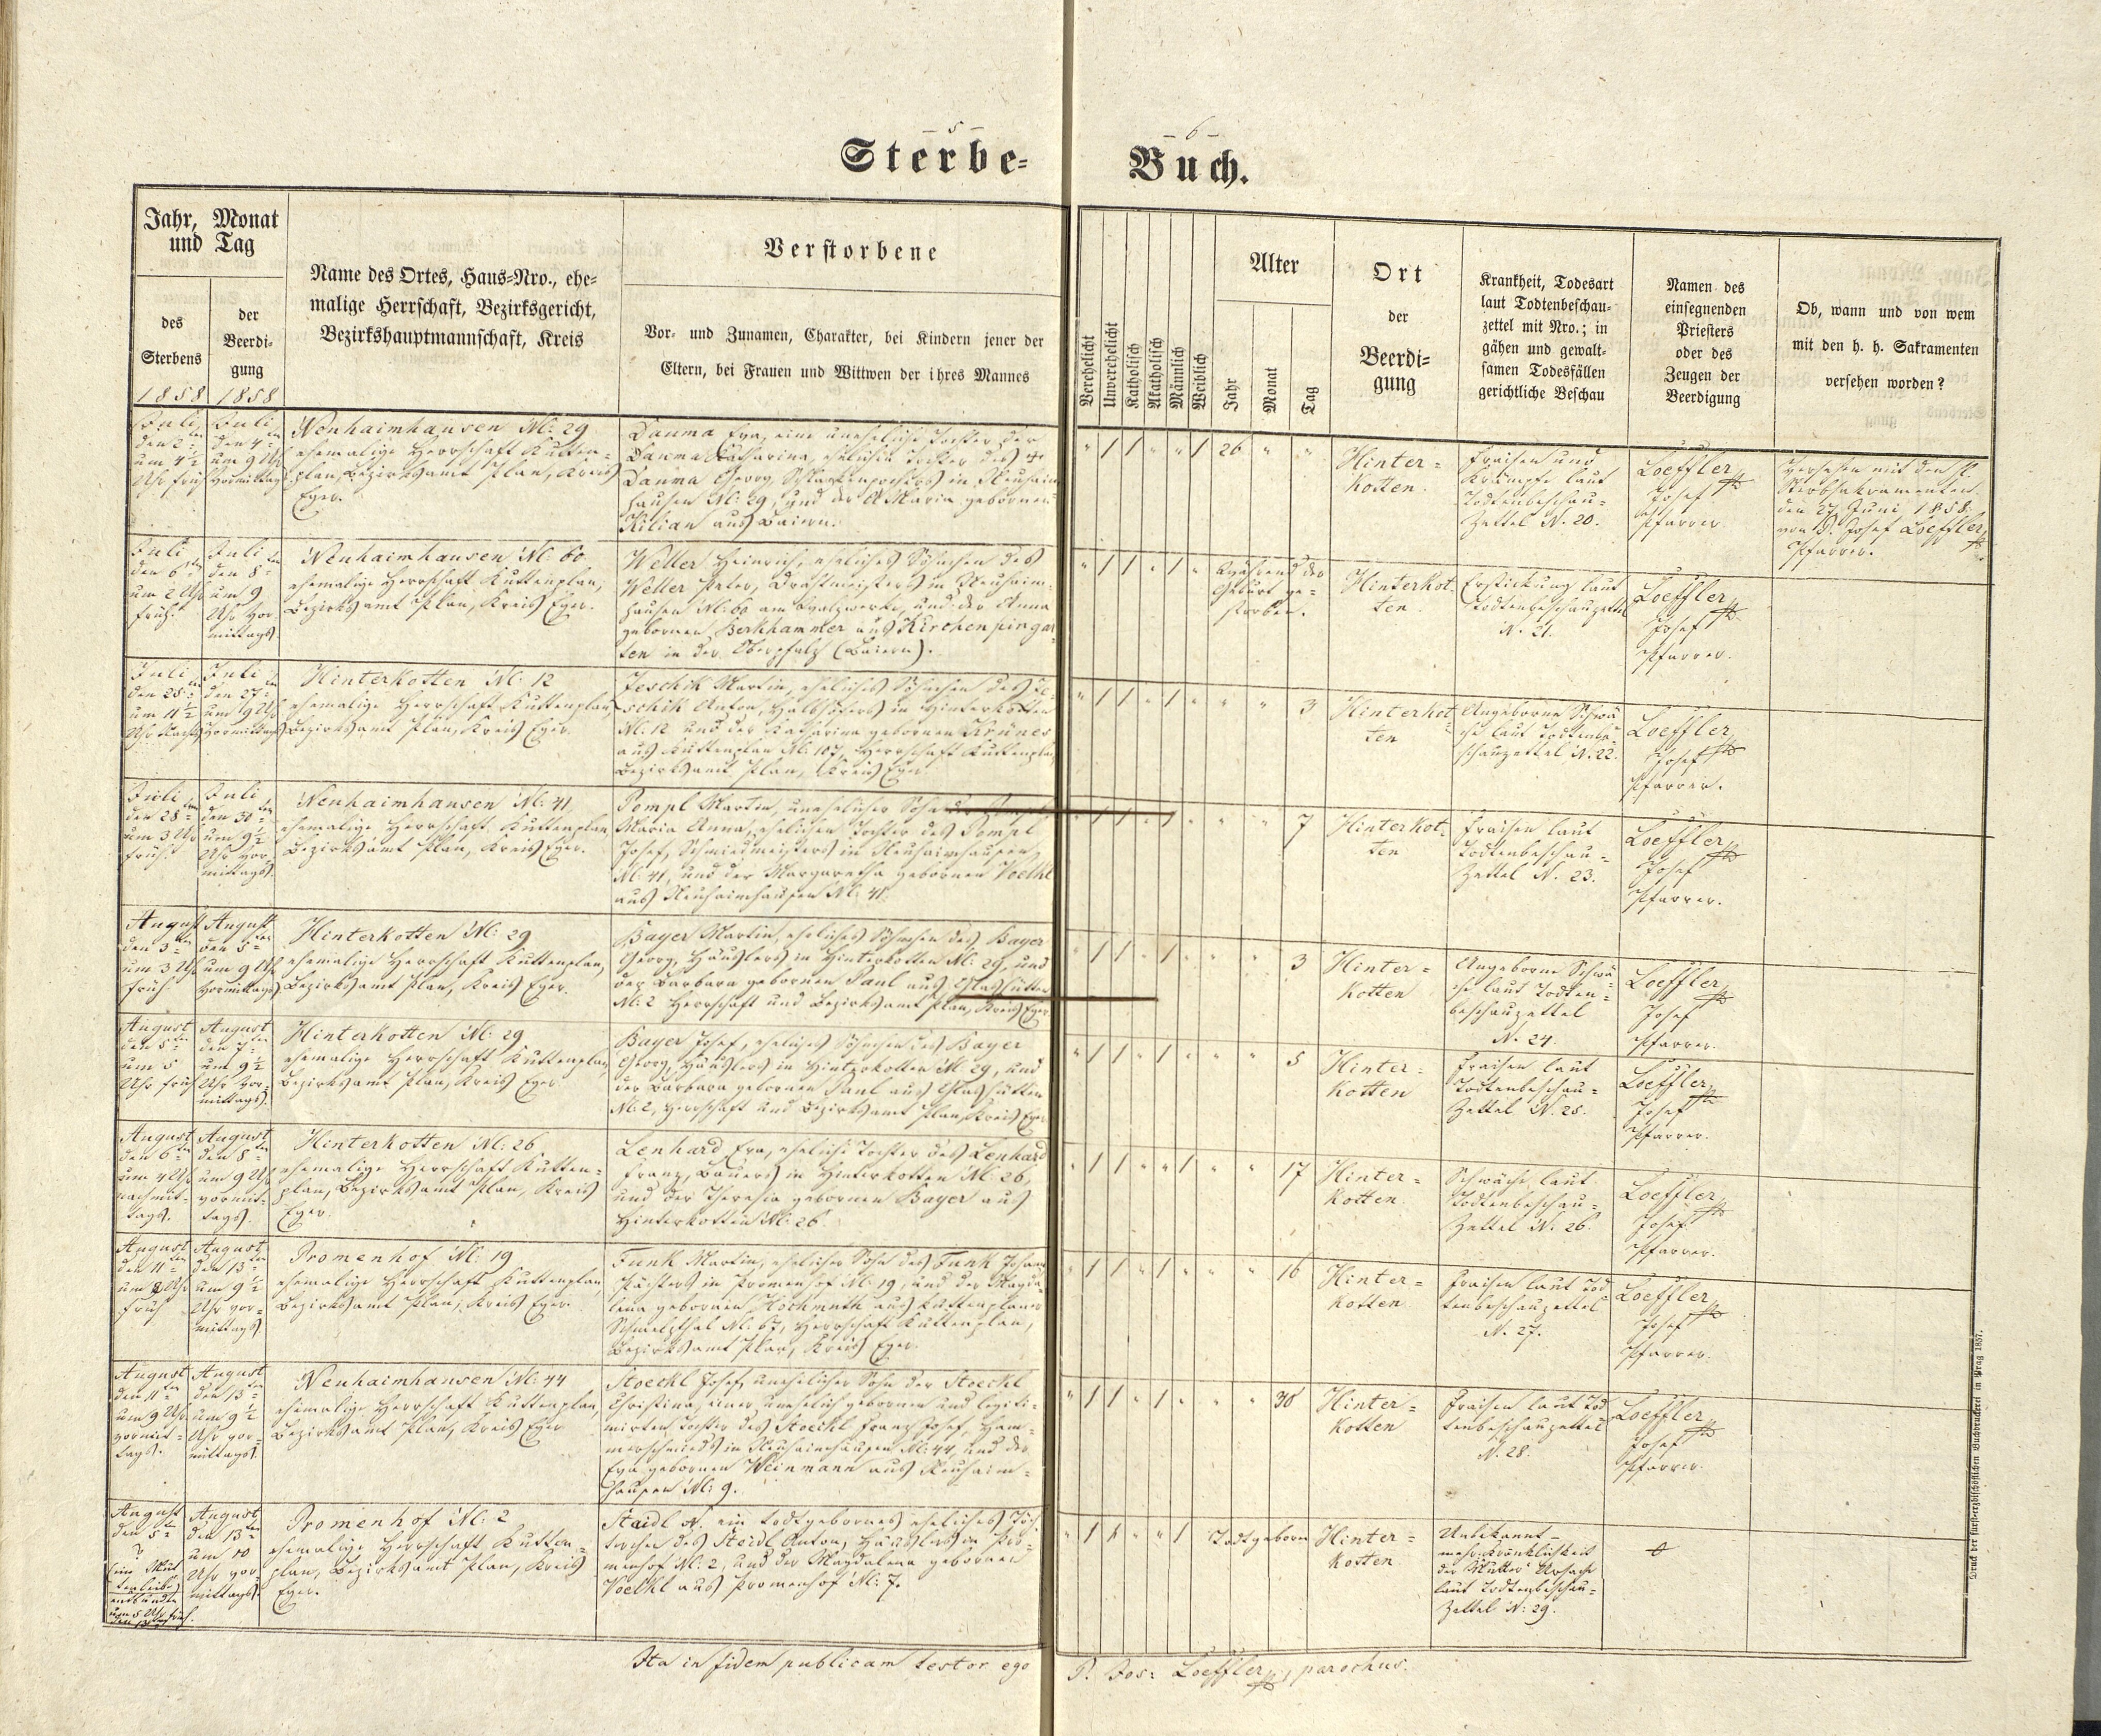 - 5 -
- 6 -
Sterbe=
Buch.
Jahr, Monat
und Tag
des
Sterbens
1858
der
Beerdi-
gung
1858
Name des Ortes, Haus=Nro., ehe=
malige Herrschaft, Bezirksgericht,
Bezirkshauptmannschaft, Kreis
Verstorbene
Vor= und Zunamen, Charakter, bei Kindern jener der
Eltern, bei Frauen und Wittwen der ihres Mannes
Verehelicht
Unverehelicht
Katholisch
Akatholisch
Männlich
Weiblich
Alter
Jahr
Monat
Tag
Ort
der
Beerdi=
gung
Krankheit, Todesart
laut Todtenbeschau=
zettel mit Nro.; in
gähen und gewalt=
samen Todesfällen
gerichtliche Beschau
Namen des
einsegnenden
Priesters
oder des
Zeugen der
Beerdigung
Ob, wann und von wem
mit den h. h. Sakramenten
versehen worden?
Juli
den 2ten
um 4½
Uhr früh
Juli
den 4ten
um 9 Uhr
Vormittag
Neuhaimhausen N: 29
ehemalige Herrschaft Kutten=
plan, Bezirksamt Plan, Kreis
Eger.
Dauma Eva, eine uneheliche Tochter der
Dauma Katharina, ehelichen Tochter des
Dauma Georg, in Neuhaim
hausen N: 29, und der A. Maria gebornen
Kilian aus Baiern.
26
Hinter=
kotten
Fraisen und
Krämpfe laut
Todtenbeschau=
Zettel N. 20.
Loeffler
Josef
Pfarrer
Versehen mit den hl.
Sterbsakramenten
den 27 Juni 1858
von P. Josef Loeffler
Pfarrer.
Juli
den 6ten
um 2 Uhr
früh.
Juli
den 8ten
um 9
Uhr Vor
mittags
Neuhaimhausen N: 60
ehemalige Herrschaft Kuttenplan,
Bezirksamt Plan, Kreis Eger.
Weller Heinrich, eheliches Söhnchen des
Weller Peter, Drahtmeisters in Neuhaim
hausen N: 60 am Walzwerke, und der Anna
gebornen Berkhammer aus Kirchenpingar
ten in der Oberpfalz (Baiern).
Während der
Geburt ge=
storben.
Hinterkot
ten
Erstickung laut
Todtenbeschauzettel
N. 21.
Loeffler
Josef
Pfarrer.
Juli
den 25ten
um 11½
Uhr Nachts
Juli
den 27ten
um 9 Uhr
Vormittags
Hinterkotten N: 12
ehemalige Herrschaft Kuttenplan,
Bezirksamt Plan, Kreis Eger.
Jeschik Martin, eheliches Söhnchen des Je
schik Anton, Halbhöfers in Hinterkotten
N: 12 und der Katharina gebornen Krünes
aus Kuttenplan N: 107, Herrschaft Kuttenplan,
Bezirksamt Plan, Kreis Eger
3
Hinterkot=
ten
Angeborne Schwä
che laut Todtenbe
schauzettel N. 22.
Loeffler
Josef
Pfarrer.
Juli
den 28ten
um 3 Uhr
früh.
Juli
den 30ten
um 9½
Uhr vor=
mittags.
Neuhaimhausen N: 41
ehemalige Herrschaft Kuttenplan,
Bezirksamt Plan, Kreis Eger.
Pempl Martin, unehelicher Sohn der Pempl
Maria Anna, ehelichen Tochter des Pempl
Josef, Schmiedmeisters in Neuhaimhausen
N: 41, und der Margaretha gebornen Voelkl
aus Neuhaimhausen N: 41.
7
Hinterkot=
ten
Fraisen laut
Todtenbeschau=
Zettel N. 23.
Loeffler
Josef
Pfarrer.
August
den 3ten
um 3 Uhr
früh
August
den 5ten
um 9 Uhr
Vormittags
Hinterkotten N: 29
ehemalige Herrschaft Kuttenplan,
Bezirksamt Plan, Kreis Eger.
Bayer Martin, eheliches Söhnchen des Bayer
Georg, Häuslers in Hinterkotten N: 29, und
der Barbara gebornen Paul aus Glashütten
N: 2 Herrschaft und Bezirksamt Plan, Kreis Eger
3
Hinter=
kotten
Angeborne Schwä
che laut Todten=
beschauzettel
N. 24.
Loeffler
Josef
Pfarrer.
August
den 5ten
um 5
Uhr früh
August
den 7ten
um 9½
Uhr vor=
mittags.
Hinterkotten N: 29
ehemalige Herrschaft Kuttenplan,
Bezirksamt Plan, Kreis Eger
Bayer Josef, eheliches Söhnchen des Bayer
Georg, Häuslers in Hinterkotten N: 29, und
der Barbara gebornen Paul aus Glashütten
N: 2, Herrschaft und Bezirksamt Plan, Kreis Eger
5
Hinter=
kotten
Fraisen laut
Todtenbeschau=
Zettel N. 25.
Loeffler
Josef
Pfarrer.
August
den 6ten
um 4 Uhr
nachmit=
tags.
August
den 8ten
um 9 Uhr
vormit=
tags.
Hinterkotten N: 26
ehemalige Herrschaft Kutten=
plan, Bezirksamt Plan, Kreis
Eger.
Lenhard Eva, eheliche Tochter des Lenhard
Franz, Bauers in Hinterkotten N: 26,
und der Theresia gebornen Bayer aus
Hinterkotten N: 26
17
Hinter=
kotten
Schwäche laut
Todtenbeschau=
Zettel N. 26.
Loeffler
Josef
Pfarrer.
August
den 11ten
um 8 Uhr
früh
August
den 13ten
um 9½
Uhr vor=
mittags
Promenhof N: 19
ehemalige Herrschaft Kuttenplan,
Bezirksamt Plan, Kreis Eger.
Funk Martin, ehelicher Sohn des Funk Johann
Pächters in Promenhof N: 19, und der Magda
lena gebornen Hochmuth aus Kuttenplaner
Schmelzthal N: 67, Herrschaft Kuttenplan,
Bezirksamt Plan, Kreis Eger.
16
Hinter=
kotten
Fraisen laut Tod
tenbeschauzettel
N. 27.
Loeffler
Josef
Pfarrer.
August
den 11ten
um 9 Uhr
vormit=
tags.
August
den 13ten
um 9½
Uhr vor=
mittags.
Neuhaimhausen N: 44
ehemalige Herrschaft Kuttenplan,
Bezirksamt Plan, Kreis Eger
Stoeckl Josef, unehelicher Sohn der Stoeckl
Christina, einer unehelich gebornen und legiti=
mirten Tochter des Stoeckl Franz Josef, Ham=
merschmieds in Neuhaimhausen N: 44, und der
Eva gebornen Weinmann aus Neuhaim=
hausen N: 9.
30
Hinter=
kotten
Fraisen laut Tod
tenbeschauzettel
N. 28.
Loeffler
Josef
Pfarrer.
August
den 5ten
?
(im Mut
terleibe)
entbunden
um 5 Uhr früh.
August
den 13ten
um 10
Uhr vor=
mittags.
Promenhof N: 2
ehemalige Herrschaft Kutten=
plan, Bezirksamt Plan, Kreis
Eger.
Staidl N. ein todtgebornes eheliches Töch
terchen des Steidl Anton, Häuslers in Pro=
menhof N: 2, und der Magdalena gebornen
Voelkl aus Promenhof N: 7.
Todtgeboren
Hinter=
kotten
Unbekannt -
mehr Kränklichkeit
der Mutter Ursache
laut Todtenbeschau=
Zettel N: 29.
Ita in fidem publicam testor ego
P. Jos: Loeffler, parochus.
Druck der fürst=erzbischöflichen Buchdruckerei in Prag 1857.